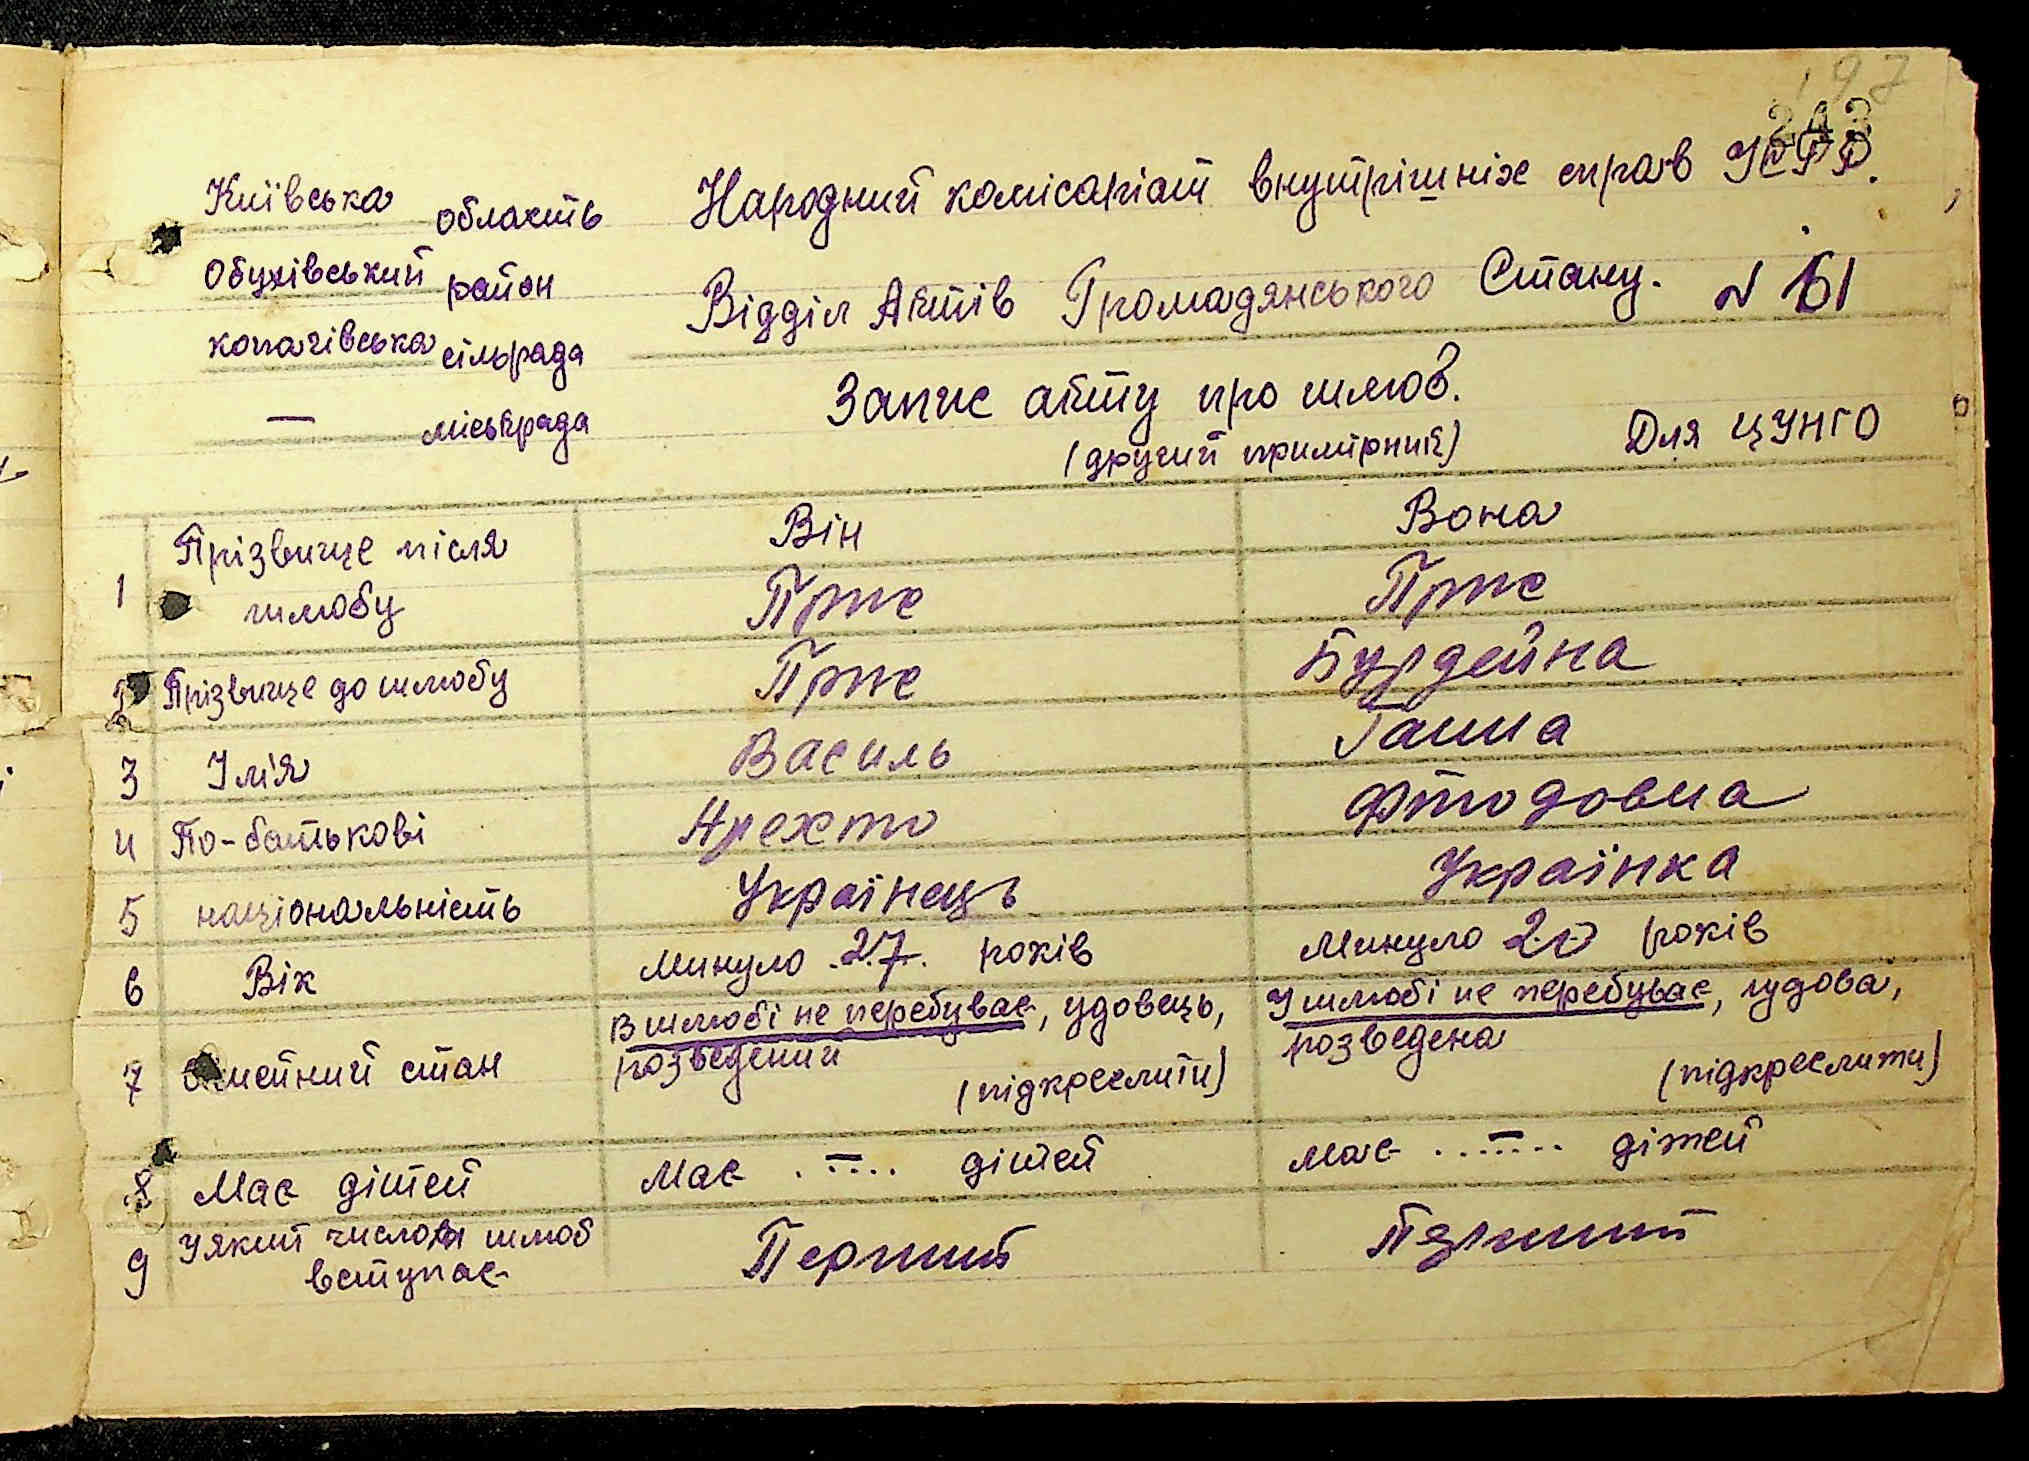 197
243
Київська область
Обухівський район
копачівська сільрада
— міськрада
Народний комісаріат внутрішніх справ УСРР.
Відділ Актів Громадянського Стану. N 61
Запис акту про шлюб.
(другий примірник)
Для ЦУНГО
Він
Вона
1 Прізвище після шлюбу
2 Прізвище до шлюбу
Бурдейна
3 Імя
Василь
Ганна
4 По-батькові
5 національність
Українець
Українка
6 Вік
Минуло 27 років
Минуло 20 років
7 Сімейний стан
В шлюбі не перебуває, удовець,
розведений
(підкреслити)
У шлюбі не перебуває, удова,
розведена
(підкреслити)
8 Має дітей
Має . — . . . . дітей
має . . . — . . . дітей
9 У який числом шлюб
вступає
Перший
Перший